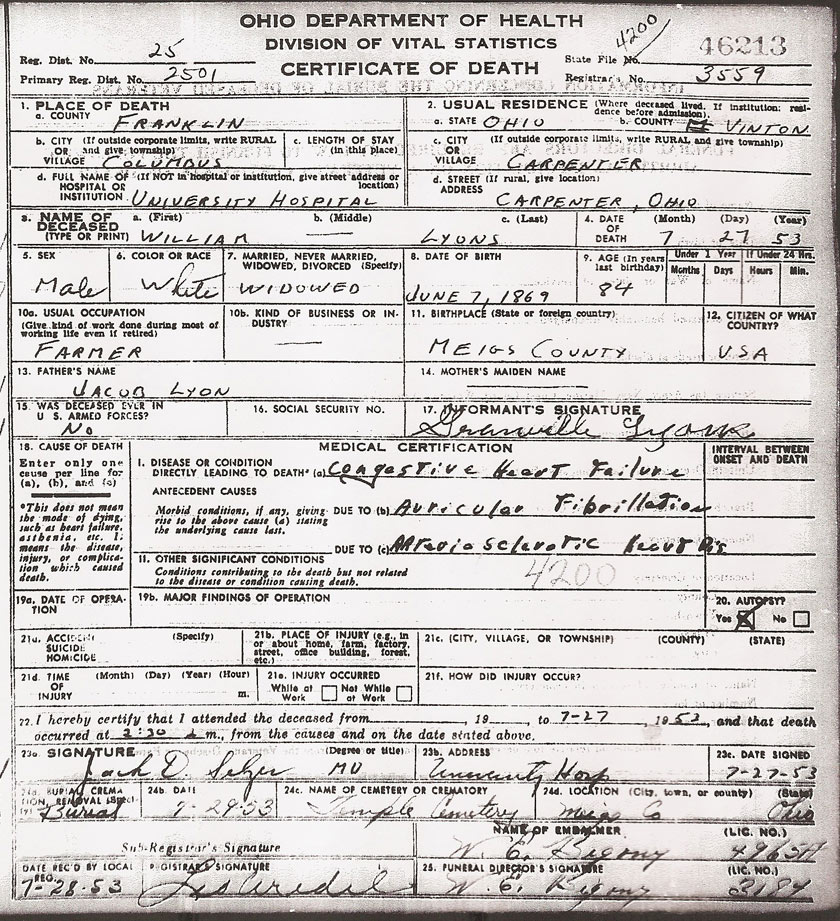 OHIO DEPARTMENT OF HEALTH
DIVISION OF VITAL STATISTICS
CERTIFICATE OF DEATH
Reg. Dist. No. 25
Primary Reg. Dist. No. 2501
4200
State File No. 46213
Registrar's No. 3559
1. PLACE OF DEATH
a. COUNTY FRANKLIN
b. CITY (If outside corporate limits, write RURAL OR and give township) VILLAGE COLUMBUS
c. LENGTH OF STAY (in this place)
d. FULL NAME OF (If NOT in hospital or institution, give street address or location) HOSPITAL OR INSTITUTION UNIVERSITY HOSPITAL
2. USUAL RESIDENCE (Where deceased lived. If institution: residence before admission).
a. STATE OHIO b. COUNTY VINTON
c. CITY (If outside corporate limits, write RURAL and give township) OR VILLAGE CARPENTER
d. STREET (If rural, give location) ADDRESS CARPENTER, OHIO
3. NAME OF DECEASED (TYPE OR PRINT) a. (First) WILLIAM b. (Middle) — c. (Last) LYONS
4. DATE OF DEATH (Month) 7 (Day) 27 (Year) 53
5. SEX Male
6. COLOR OR RACE White
7. MARRIED, NEVER MARRIED, WIDOWED, DIVORCED (Specify) WIDOWED
8. DATE OF BIRTH JUNE 7, 1869
9. AGE (In years last birthday) 84
Under 1 Year Months Days
If Under 24 Hrs. Hours Min.
10a. USUAL OCCUPATION (Give kind of work done during most of working life even if retired) FARMER
10b. KIND OF BUSINESS OR INDUSTRY —
11. BIRTHPLACE (State or foreign country) MEIGS COUNTY
12. CITIZEN OF WHAT COUNTRY? USA
13. FATHER'S NAME JACOB LYON
14. MOTHER'S MAIDEN NAME —
15. WAS DECEASED EVER IN U. S. ARMED FORCES? No
16. SOCIAL SECURITY NO.
17. INFORMANT'S SIGNATURE Granville Lyons
18. CAUSE OF DEATH
Enter only one cause per line for (a), (b), and (c)
*This does not mean the mode of dying, such as heart failure, asthenia, etc. It means the disease, injury, or complication which caused death.
MEDICAL CERTIFICATION
INTERVAL BETWEEN ONSET AND DEATH
I. DISEASE OR CONDITION DIRECTLY LEADING TO DEATH* (a) Congestive Heart Failure
ANTECEDENT CAUSES
Morbid conditions, if any, giving rise to the above cause (a) stating the underlying cause last.
DUE TO (b) Auricular Fibrillation
DUE TO (c) Arteriosclerotic Heart Dis
II. OTHER SIGNIFICANT CONDITIONS
Conditions contributing to the death but not related to the disease or condition causing death.
4200
19a. DATE OF OPERATION
19b. MAJOR FINDINGS OF OPERATION
20. AUTOPSY?
Yes No
21a. ACCIDENT SUICIDE HOMICIDE (Specify)
21b. PLACE OF INJURY (e.g., in or about home, farm, factory, street, office building, forest, etc.)
21c. (CITY, VILLAGE, OR TOWNSHIP) (COUNTY) (STATE)
21d. TIME OF INJURY (Month) (Day) (Year) (Hour) m.
21e. INJURY OCCURRED While at Work Not While at Work
21f. HOW DID INJURY OCCUR?
22. I hereby certify that I attended the deceased from , 19 , to 7-27, 1953, and that death
occurred at 2:30 m., from the causes and on the date stated above.
23a. SIGNATURE (Degree or title) Jack D. Selzer MD
23b. ADDRESS University Hosp
23c. DATE SIGNED 7-27-53
24a. BURIAL, CREMATION, REMOVAL (Specify) Burial
24b. DATE 7-29-53
24c. NAME OF CEMETERY OR CREMATORY Temple Cemetery
24d. LOCATION (City, town, or county) (State) Meigs Co Ohio
Sub-Registrar's Signature
NAME OF EMBALMER (LIC. NO.)
DATE REC'D BY LOCAL REG. 7-28-53
REGISTRAR'S SIGNATURE
25. FUNERAL DIRECTOR'S SIGNATURE (LIC. NO.)
W. E. 3184